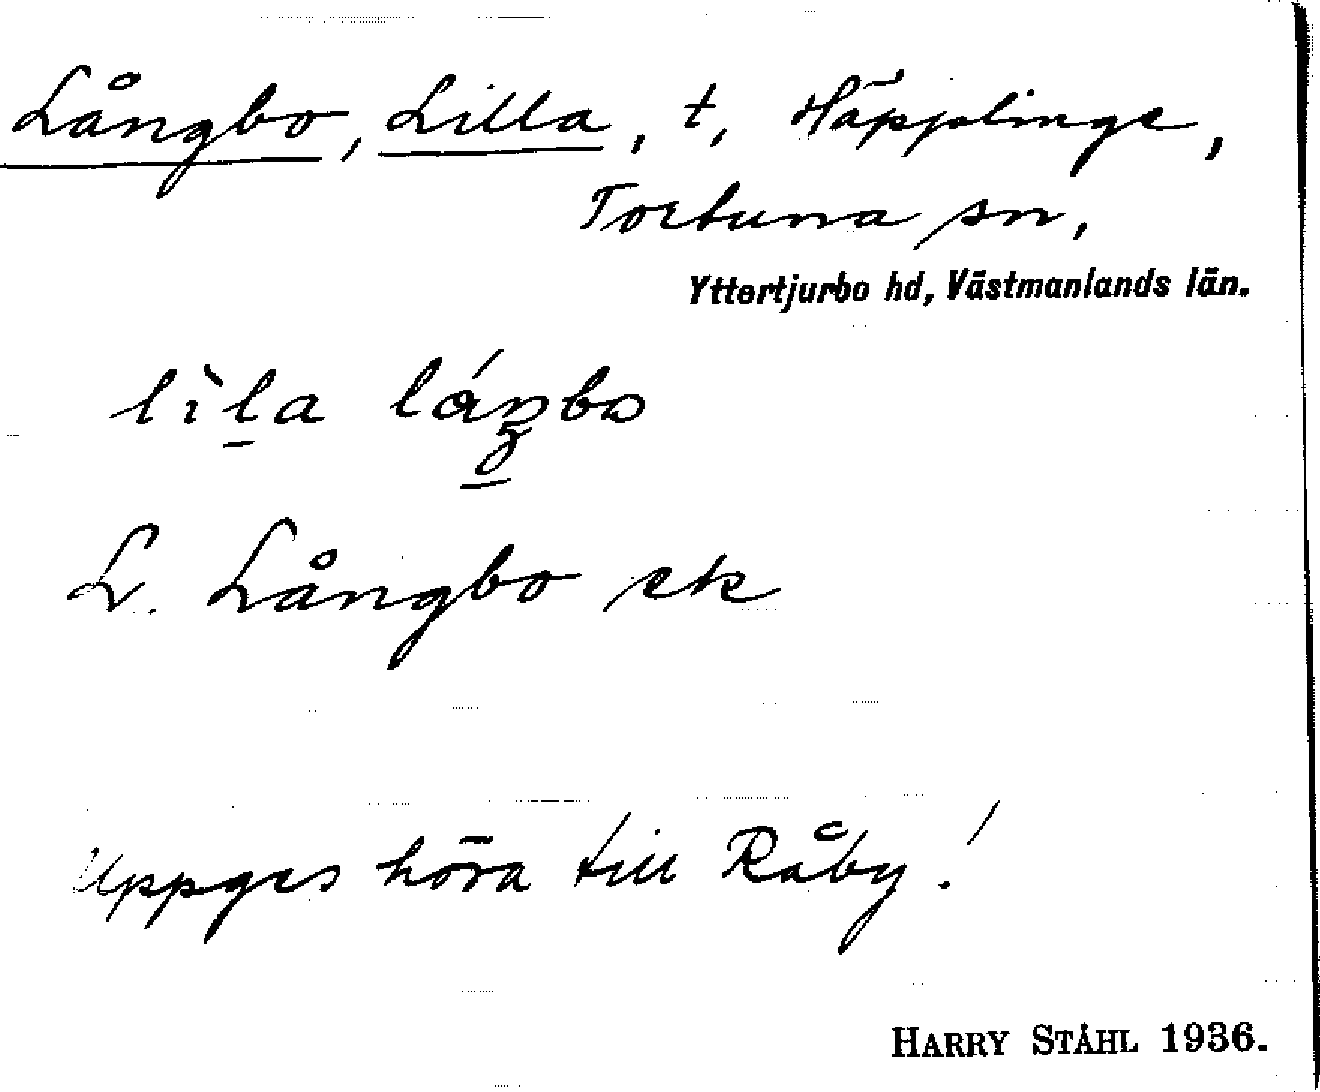 Långbo, Lilla, t, Häpplinge,
Tortuna sn,
Yttertjurbo hd, Västmanlands län.
lìl̠a
L. Långbo ek
Uppges höra till Råby!
HARRY STÅHL 1936.